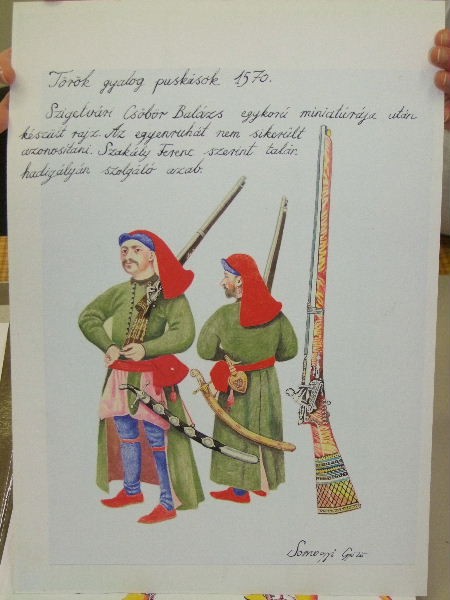 Török gyalog puskások 1570.
Szigetvári Csöbör Balázs egykorú miniatúrája után
készült rajz. Az egyenruhát nem sikerült
azonosítani. Szakály Ferenc szerint talán
hadigályán szolgáló azab.
Somogyi Győző